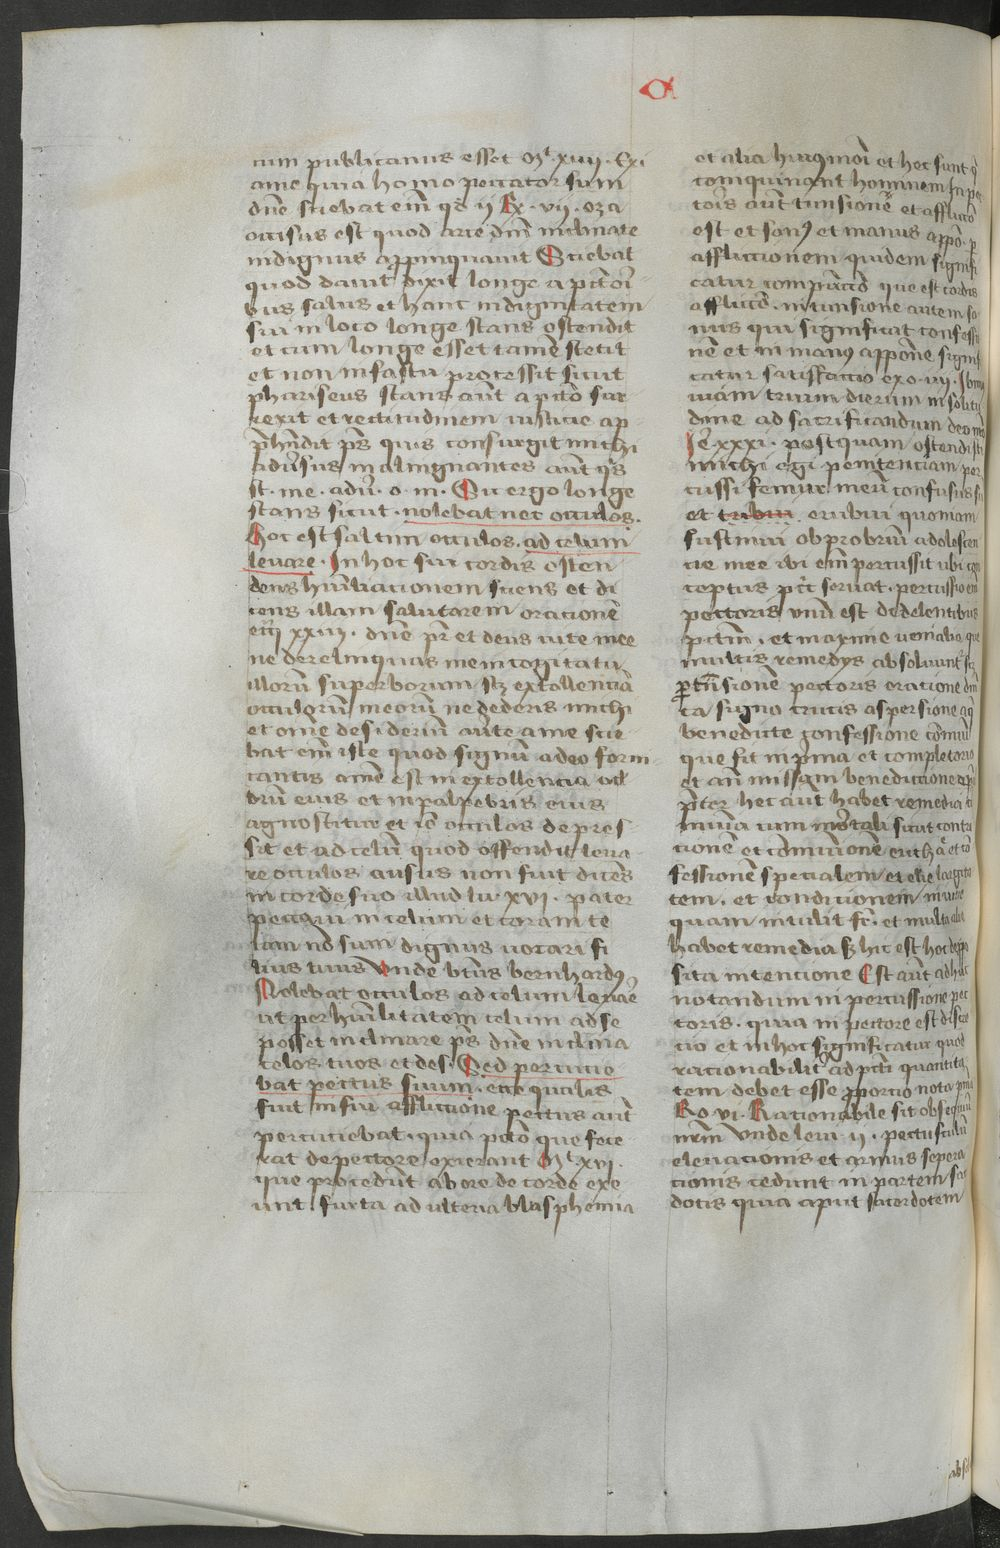 α
cum publicanus esset Mt xviij. Exi
a me quia homo peccator sum
dne sciebat em qd ij Rx. vij. oza
occisus est quod arce dni
indignus appropinquauit Sciebat
quod dauit dixit longe a pctori
bus salus et hanc indignitatem
sui in loco longe stans ostendit
et cum longe esset tame stetit
et non in processit sicut
phariseus stans aut a pcto sur
rexit et rectitudinem iusticie ap
phendit ps quis consurgit michi
aduersus malingnantes aut qs
st. me. adu. o. m. ergo longe
stans sicut. nolebat nec occulos.
hoc est saltim occulos. ad celum
leuare. In hoc sui cordis osten
dens humiliacionem sciens et di
cens illam salutarem oracione
xxiij. dne pr et deus uite mee
ne derelinquas me in cogitatu
illoru superborum scz extollencia
occuloru meoru ne dederis michi
et ome desideriu auerte a me scie
bat em iste quod signu a deo forni
cantis ame est in extollencia
oru eius et in palpebris eius
agnoscitur et io occulos depres
sit et ad celu quod offendit leua
re occulos ausus non fuit dices
in corde suo illud lu xvi. pater
peccaui in celum et coram te
iam no sum dignus uocari fi
lius tuus Vnde btus bernhardus
Nolebat occulos ad celum leuare
ut per humilitatem celum ad se
posset inclinare ps dne inclina
celos tuos et des. Sed percucie
bat pectus suum. ecce qualis
fuit in sui afflictione pectus aut
percuciebat. quia pcta que fece
rat de pectore exierant Mt xvi.
que procedut ab ore de corde exe
unt. furta adulteria blasphemia
et alia huiusmoi et hec sunt q
coinquinant hominem In pec
toris aut tunsione et afflictio
est et sonus et manus appo. p
afflictionem quidem signifi
catur compuctio que est cordis
afflictio. in tunsione autem so
nus qui significat confessio
ne et in manus appone signifi
catur satisfactio exo. iij. Ibimus
uiam trium dierum in solitu
dine ad sacrificandum deo nro
Ie xxxi. postquam ostendisti
michi egi penitenciam per
cussi femur meu confusus su
et tribui erubui quoniam
sustinui obprobriu adolescen
cie mee ibi em percussit ubi con
ceptus pcti seruat. percussio em
pectoris unu est de delentibus
pctm. et maxime uenialia que
multis remedys absoluunt scz
p tunsione pectoris oracione dni
ca signo crucis aspersione aq
benedicte confessione comuni
que fit in pma et completorio
et an missam benedictione epi
preter hec aut habet remedia
cum mortali sicut contri
cione et comunione eucha et co
fessione specialem et ele largita
tem. et condicionem iniurie
quam intulit fr. et multa alia
habet remedia sz hic est hoc
sita intencione Est aut adhuc
notandum in percussione pec
toris. quia in pectore est discre
cio et in hoc significatur quod
racionabilit ad pcti quantita
tem debet esse pporcio nota pnia
Ro vi. Racionabile sit obsequiu
nrm Vnde leui ij. pectusculu
eleuacionis et armus sepera
cionis cedunt in partem sacer
dotis quia aput sacerdotem